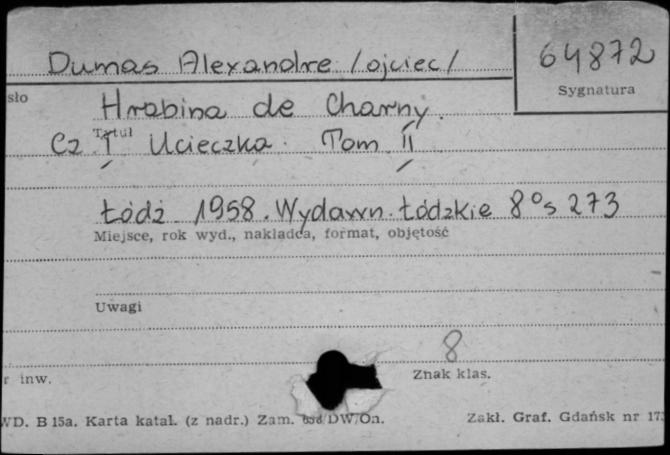 Dumas Alexandre /ojciec/
64872
Sygnatura
sło
Hrabina de Charny.
Tytuł
Cz I Ucieczka. Tom II
Łódź 1958. Wydawn. Łódzkie 8°s 273
Miejsce, rok wyd., nakładca, format, objętość
Uwagi
8
r inw.
Znak klas.
WD. B 15a. Karta katal. (z nadr.) Zam. DW/On.
Zakł. Graf. Gdańsk nr 17